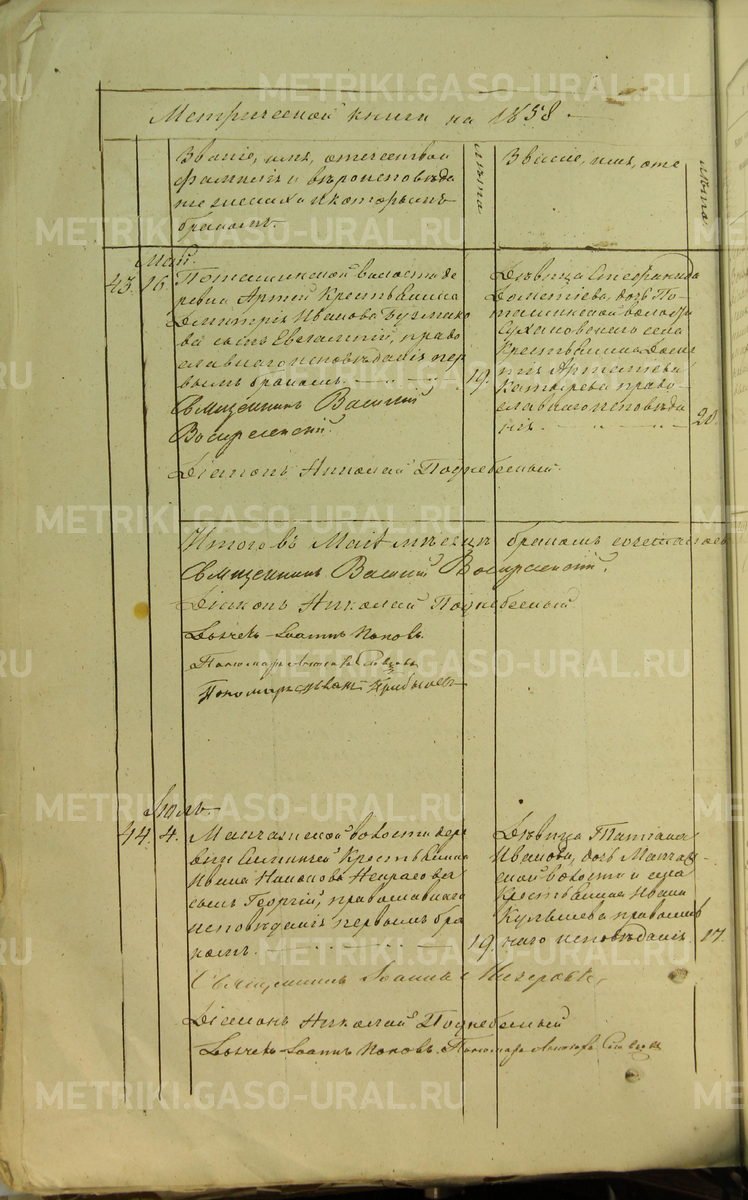 METRIKI.GASO-URAL.RU
Метрической книги на 1858.
Званіе, имя, отечество и
фамилія и вѣроисповѣда
ніе жениха и которымъ
бракомъ.
лѣта
Званіе, имя, оте
лѣта
Май.
43. 16. Поташинской волости де
ревни Артей Крестьянина
Димитрія Иванова Бузмако
ва сынъ Евгампій, право
славнаго исповѣданія пер
вымъ бракомъ. 19.
Дѣвица Стефанида
Дометіева, дочь По-
ташинской волости
Сухановскаго села
Крестьянина Домен
тія Артемьева
Катырева право
славнаго исповѣда
нія. 20.
Священникъ Василій
Воскресенскій.
Діаконъ Николай Поднебесный.
Итого въ Маіѣ мѣсяцѣ бракомъ сочеталось
Священникъ Василій Воскресенскій.
Діаконъ Николай Поднебесный
Дьячекъ Іоаннъ Поповъ.
Пономарь
Пономарь
44. 4. Манчажской волости дере
вни Крестьянина
Ивана
сынъ Георгій, православнаго
исповѣданія первымъ бра
комъ. 19.
Дѣвица Татіана
Иванова, дочь Манчаж-
ской волости и села
Крестьянина Ивана
Кулышева православ
наго исповѣданія. 17.
Священникъ Іоаннъ
Діаконъ Николай Поднебесный
Дьячекъ Іоаннъ Поповъ. Пономарь